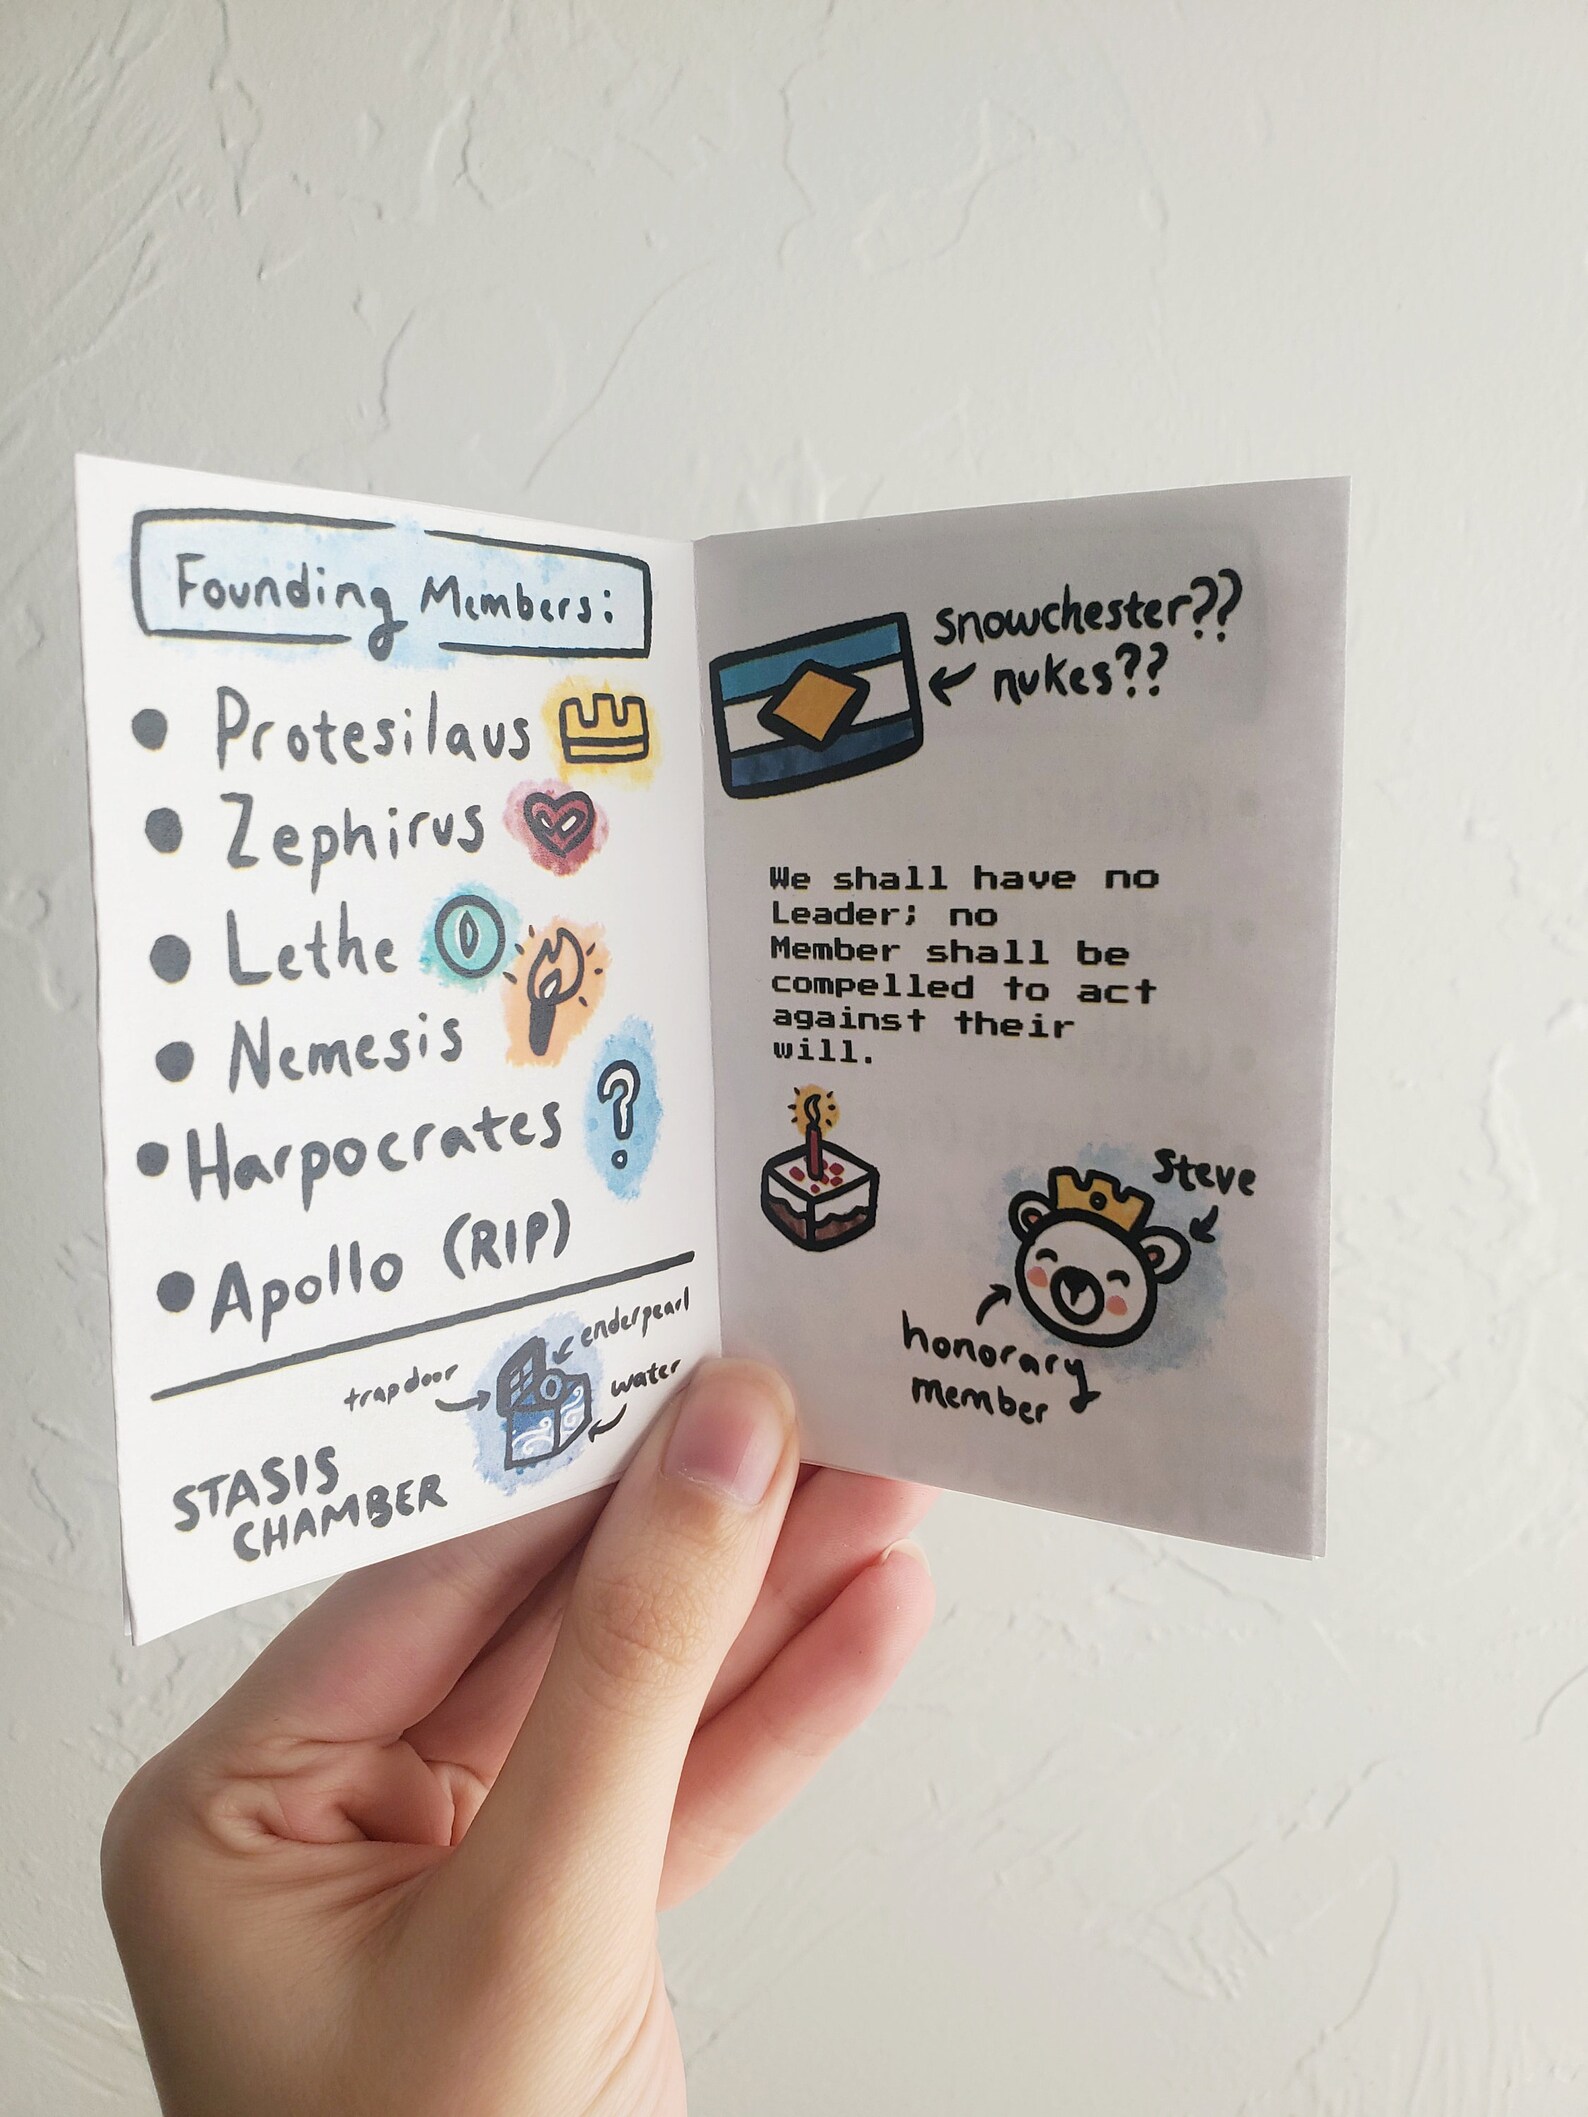 Founding Members:
• Protesilaus
• Zephirus
• Lethe
• Nemesis
• Harpocrates
• Apollo (RIP)
trapdoor
enderpearl
water
STASIS
CHAMBER
snowchester??
nukes??
We shall have no
Leader; no
Member shall be
compelled to act
against their
will.
Steve
honorary
member